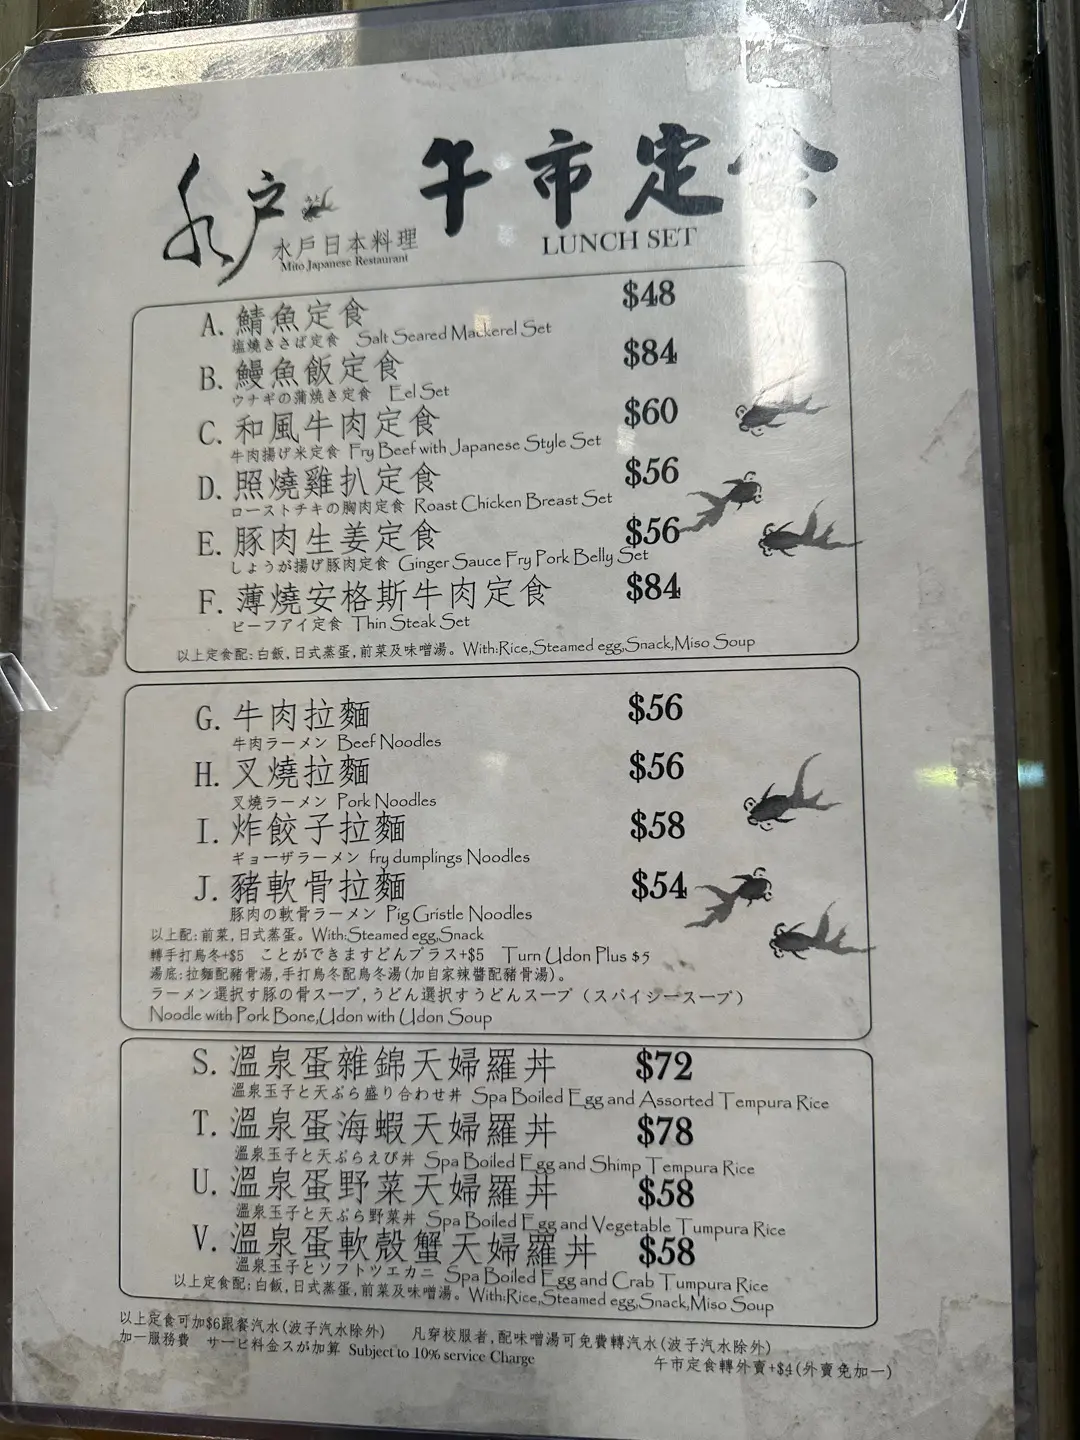 水戶
水戶日本料理
Mito Japanese Restaurant
午市定食
LUNCH SET
A. 鯖魚定食 $48
塩焼きさば定食 Salt Seared Mackerel Set
B. 鰻魚飯定食 $84
ウナギの蒲焼き定食 Eel Set
C. 和風牛肉定食 $60
牛肉揚げ米定食 Fry Beef with Japanese Style Set
D. 照燒雞扒定食 $56
ローストチキの胸肉定食 Roast Chicken Breast Set
E. 豚肉生姜定食 $56
しょうが揚げ豚肉定食 Ginger Sauce Fry Pork Belly Set
F. 薄燒安格斯牛肉定食 $84
ビーフアイ定食 Thin Steak Set
以上定食配:白飯,日式蒸蛋,前菜及味噌湯。With:Rice,Steamed egg,Snack,Miso Soup
G. 牛肉拉麵 $56
牛肉ラーメン Beef Noodles
H. 叉燒拉麵 $56
叉燒ラーメン Pork Noodles
I. 炸餃子拉麵 $58
ギョーザラーメン fry dumplings Noodles
J. 豬軟骨拉麵 $54
豚肉の軟骨ラーメン Pig Gristle Noodles
以上配:前菜,日式蒸蛋。With:Steamed egg,Snack
轉手打烏冬+$5 ことができますどんプラス+$5 Turn Udon Plus $5
湯底:拉麵配豬骨湯,手打烏冬配烏冬湯(加自家辣醬配豬骨湯)。
ラーメン選択す豚の骨スープ,うどん選択すうどんスープ（スパイシースープ）
Noodle with Pork Bone,Udon with Udon Soup
S. 溫泉蛋雜錦天婦羅丼 $72
溫泉玉子と天ぷら盛り合わせ丼 Spa Boiled Egg and Assorted Tempura Rice
T. 溫泉蛋海蝦天婦羅丼 $78
溫泉玉子と天ぷらえび丼 Spa Boiled Egg and Shimp Tempura Rice
U. 溫泉蛋野菜天婦羅丼 $58
溫泉玉子と天ぷら野菜丼 Spa Boiled Egg and Vegetable Tumpura Rice
V. 溫泉蛋軟殼蟹天婦羅丼 $58
溫泉玉子とソフトツエカニ Spa Boiled Egg and Crab Tumpura Rice
以上定食配:白飯,日式蒸蛋,前菜及味噌湯。With:Rice,Steamed egg,Snack,Miso Soup
以上定食可加$6跟餐汽水(波子汽水除外) 凡穿校服者,配味噌湯可免費轉汽水(波子汽水除外)
加一服務費 サービ料金スが加算 Subject to 10% service Charge
午市定食轉外賣+$4(外賣免加一)